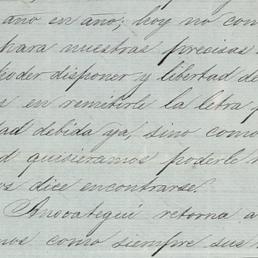 año en año; hoy no con
para nuestras precisas
poder disponer y libertad de
en remitirle la letra
dad debida ya, sino como
d quisieramos poderle
dice encontrarse.
Anoategui retorna a
mos como siempre sus